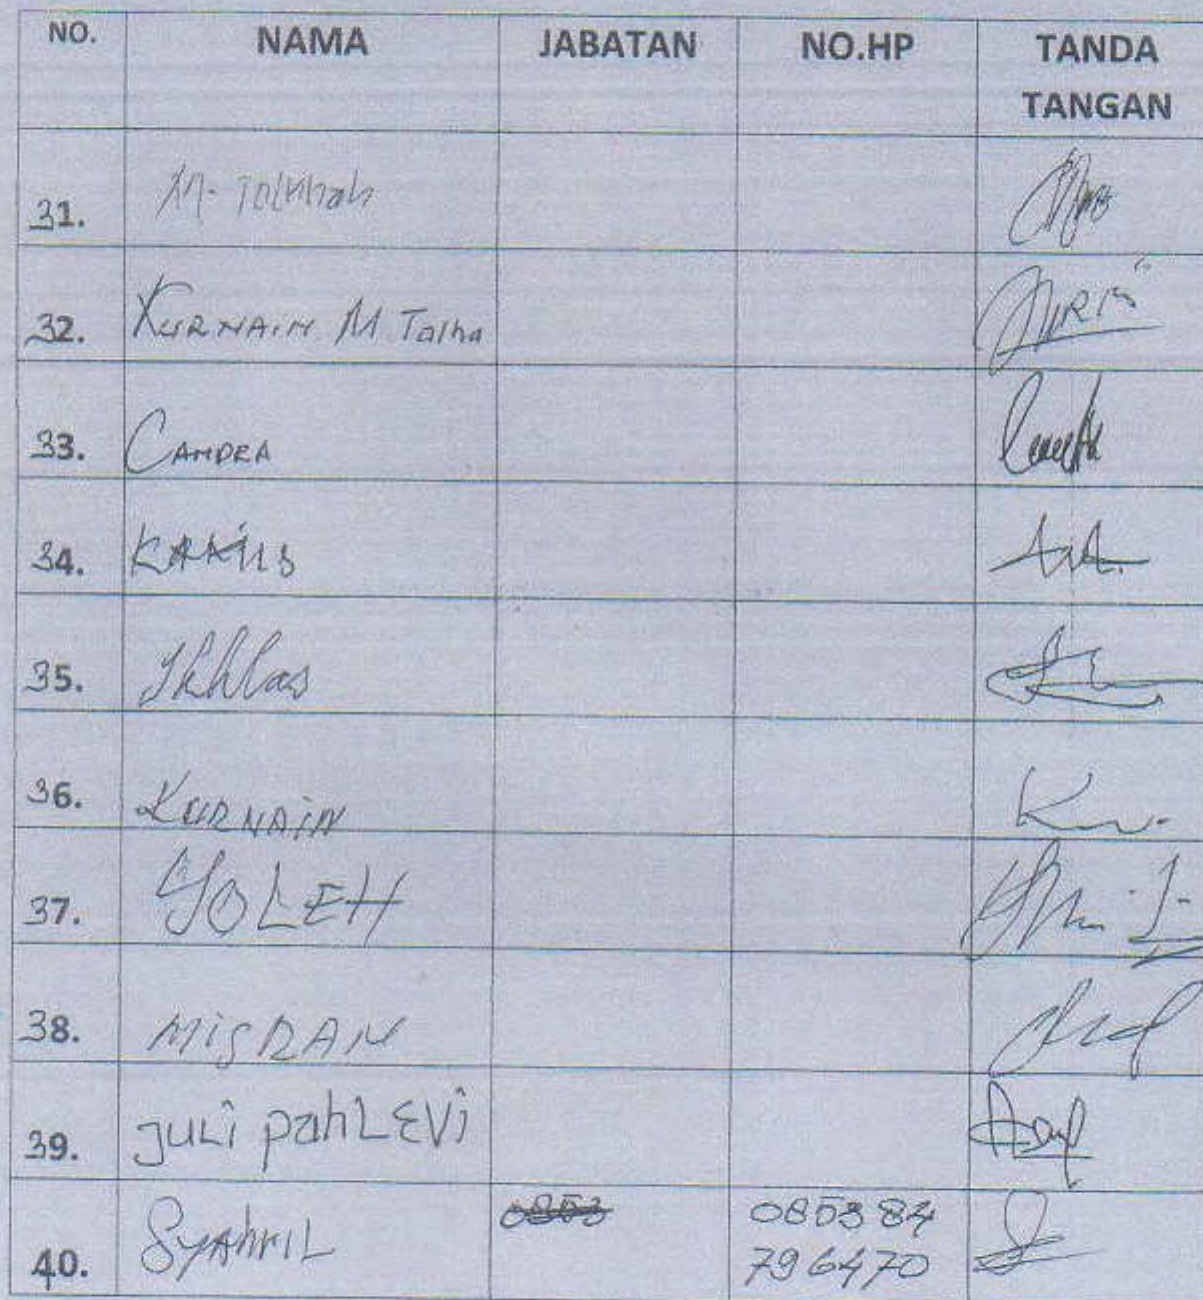 NO. NAMA JABATAN NO.HP TANDA
TANGAN
31. M. Tolkhah
32. KURNAIN M Talha
33. CANDRA
34.
35. Ikhlas
36. KURNAIN
37. YOLEH
38. MISRAN
39. JULi pahLEVi
40. SyAhrIL 0853 0853 84
796470